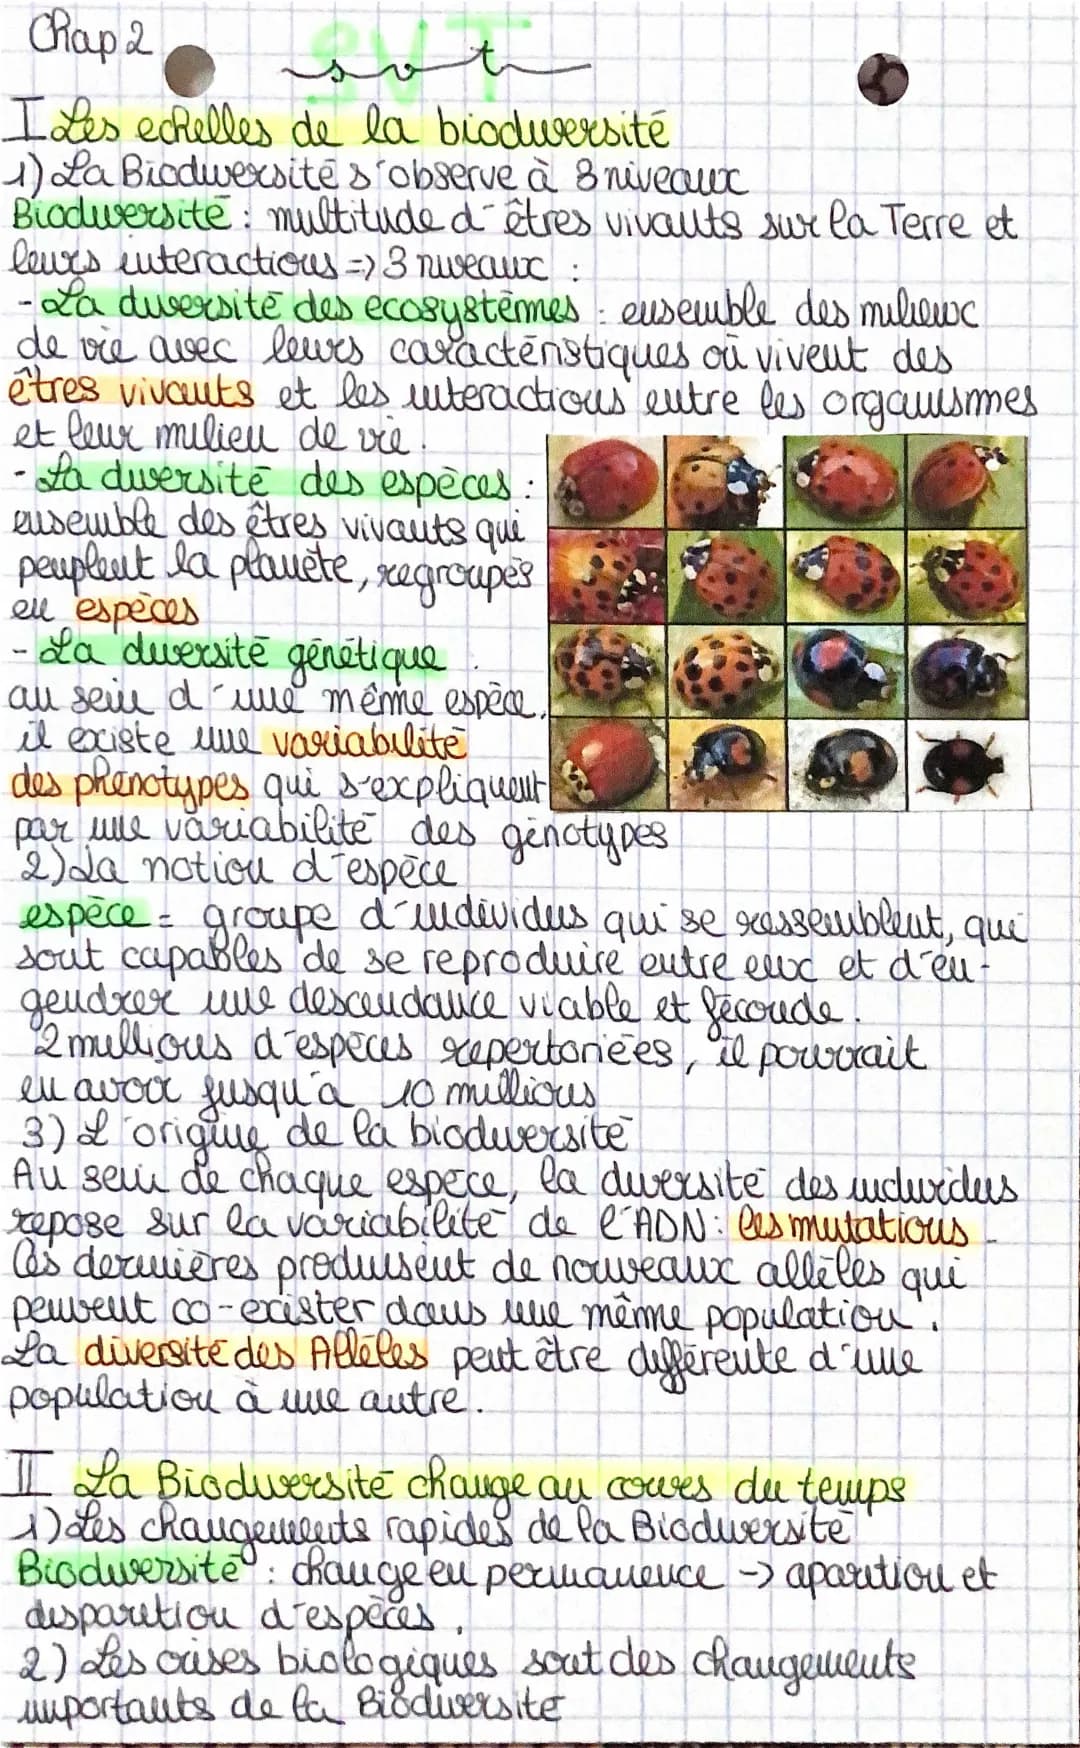 Chap 2
SVT
svt
I Les echelles de la biodiversité
1) La Biodiversité s'observe à 3 niveaux
Biodiversité : multitude d'êtres vivants sur la Terre et
leurs interactions => 3 niveaux :
- La diversité des ecosystèmes : ensemble des milieux
de vie avec leurs caractéristiques où vivent des
êtres vivants et les interactions entre les organismes
et leur milieu de vie.
- La diversité des espèces :
ensemble des êtres vivants qui
peuplent la planète, regroupés
en espèces
- La diversité génétique
au sein d'une même espèce,
il existe une variabilité
des phénotypes qui s'expliquent
par une variabilité des génotypes
2) La notion d'espèce
espèce = groupe d'individus qui se ressemblent, qui
sont capables de se reproduire entre eux et d'en-
gendrer une descendance viable et féconde.
2 millions d'espèces repertoriées, il pourrait
en avoir jusqu'a 10 millions
3) L'origine de la biodiversité
Au sein de chaque espèce, la diversité des individus
repose sur la variabilité de l'ADN : les mutations.
Ces dernières produisent de nouveaux allèles qui
peuvent co-exister dans une même population.
La diversité des Allèles peut être différente d'une
population à une autre.
II La Biodiversité change au cours du temps
1) Les changements rapides de la Biodiversité
Biodiversité : change en permanence -> aparition et
disparition d'espèces.
2) Les crises biologiques sont des changements
importants de la Biodiversité